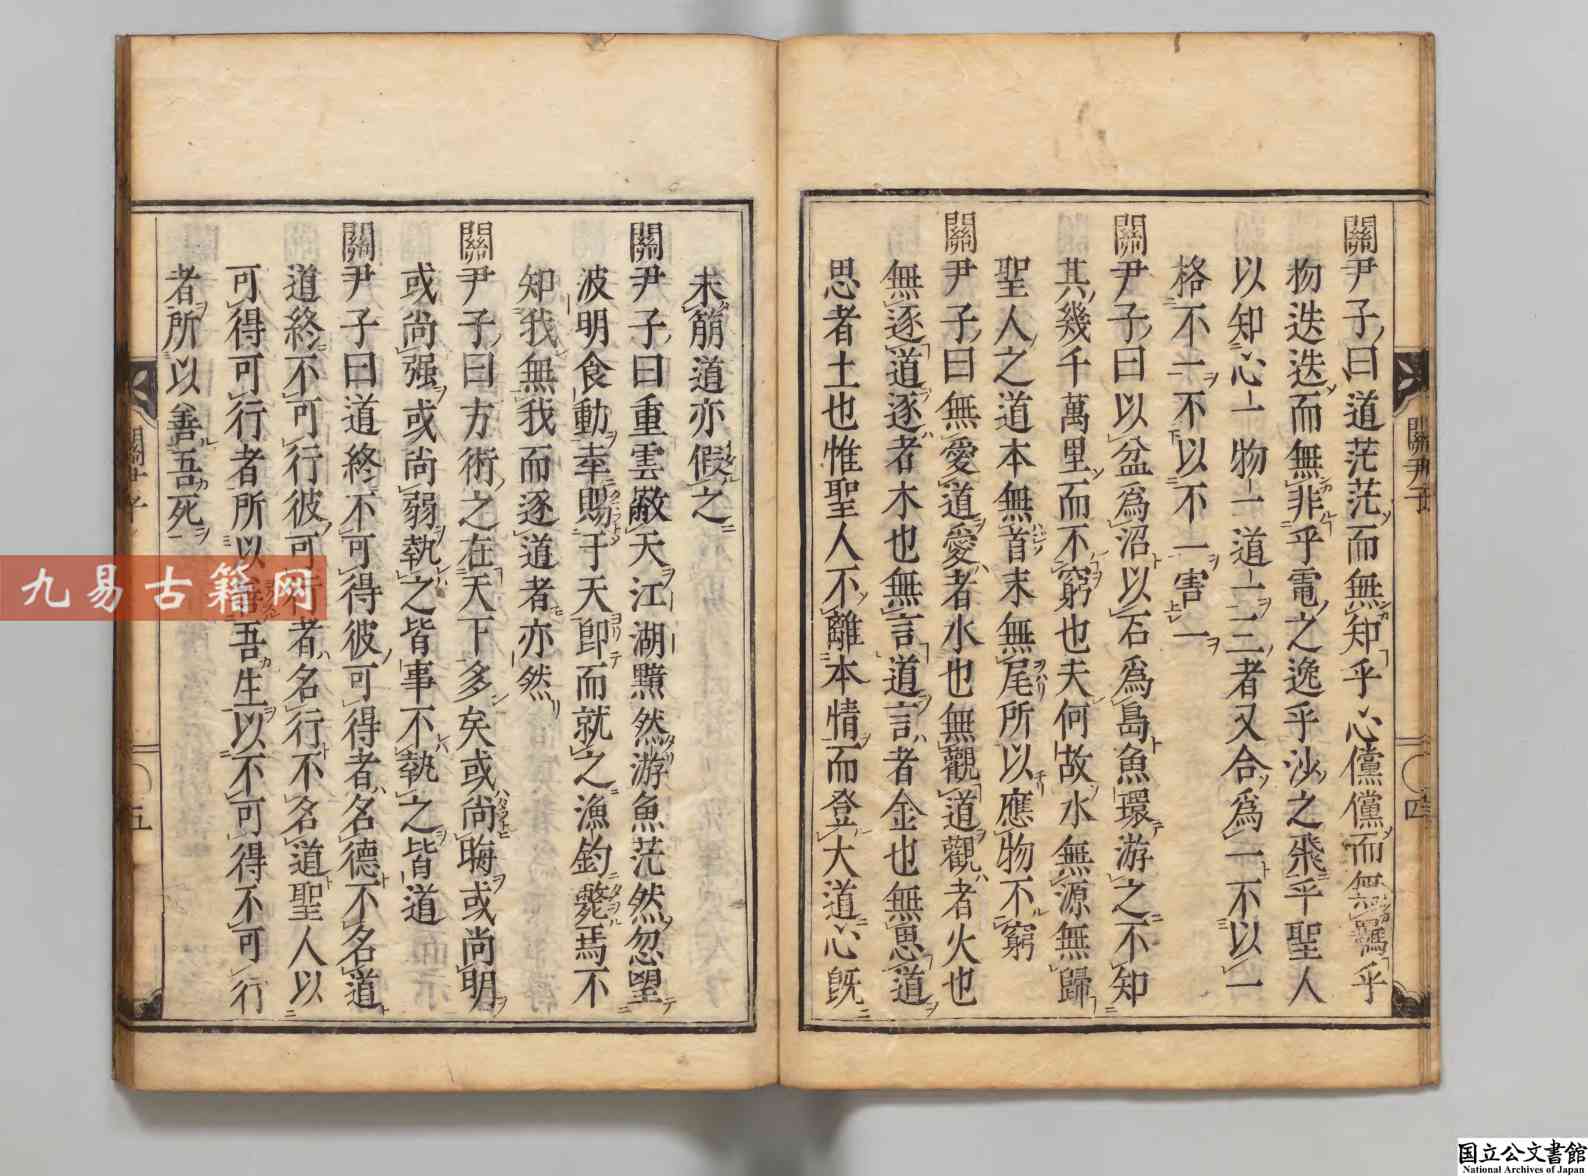 關尹子曰道茫茫而無知乎心儻儻而無羈乎
物迭迭而無非乎電之逸乎沙之飛乎聖人
以知心一物一道一三者又合爲一不以一
格不一不以不一害一
關尹子曰以盆爲沼以石爲島魚環游之不知
其幾千萬里而不窮也夫何故水無源無歸
聖人之道本無首末無尾所以應物不窮
關尹子曰無愛道愛者水也無觀道觀者火也
無逐道逐者木也無言道言者金也無思道
思者土也惟聖人不離本情而登大道心既
關尹子
四
未萠道亦假之
關尹子曰重雲蔽天江湖黯然游魚茫然忽望
波明食動幸賜于天即而就之漁釣斃焉不
知我無我而逐道者亦然
關尹子曰方術之在天下多矣或尚晦或尚明
或尚强或尚弱執之皆事不執之皆道
關尹子曰道終不可得彼可得者名德不名道
道終不可行彼可行者名行不名道聖人以
可得可行者所以善吾生以不可得不可行
者所以善吾死
五
九易古籍网
国立公文書館
National Archives of Japan